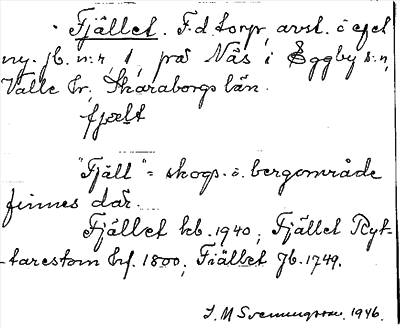 Fjället. F.d. torp, avst. o. ej
ny. jb. n:r, 1, på Näs i Eggby s:n,
Valle hr, Skaraborgs län.
fjælt
"Fjäll" = skogs- o. bergområde
finnes där.
Fjället kb. 1940; Fjället Ryt-
tarestom hf. 1800; Fiället Jb. 1749.
J. M Svennungsson. 1946.